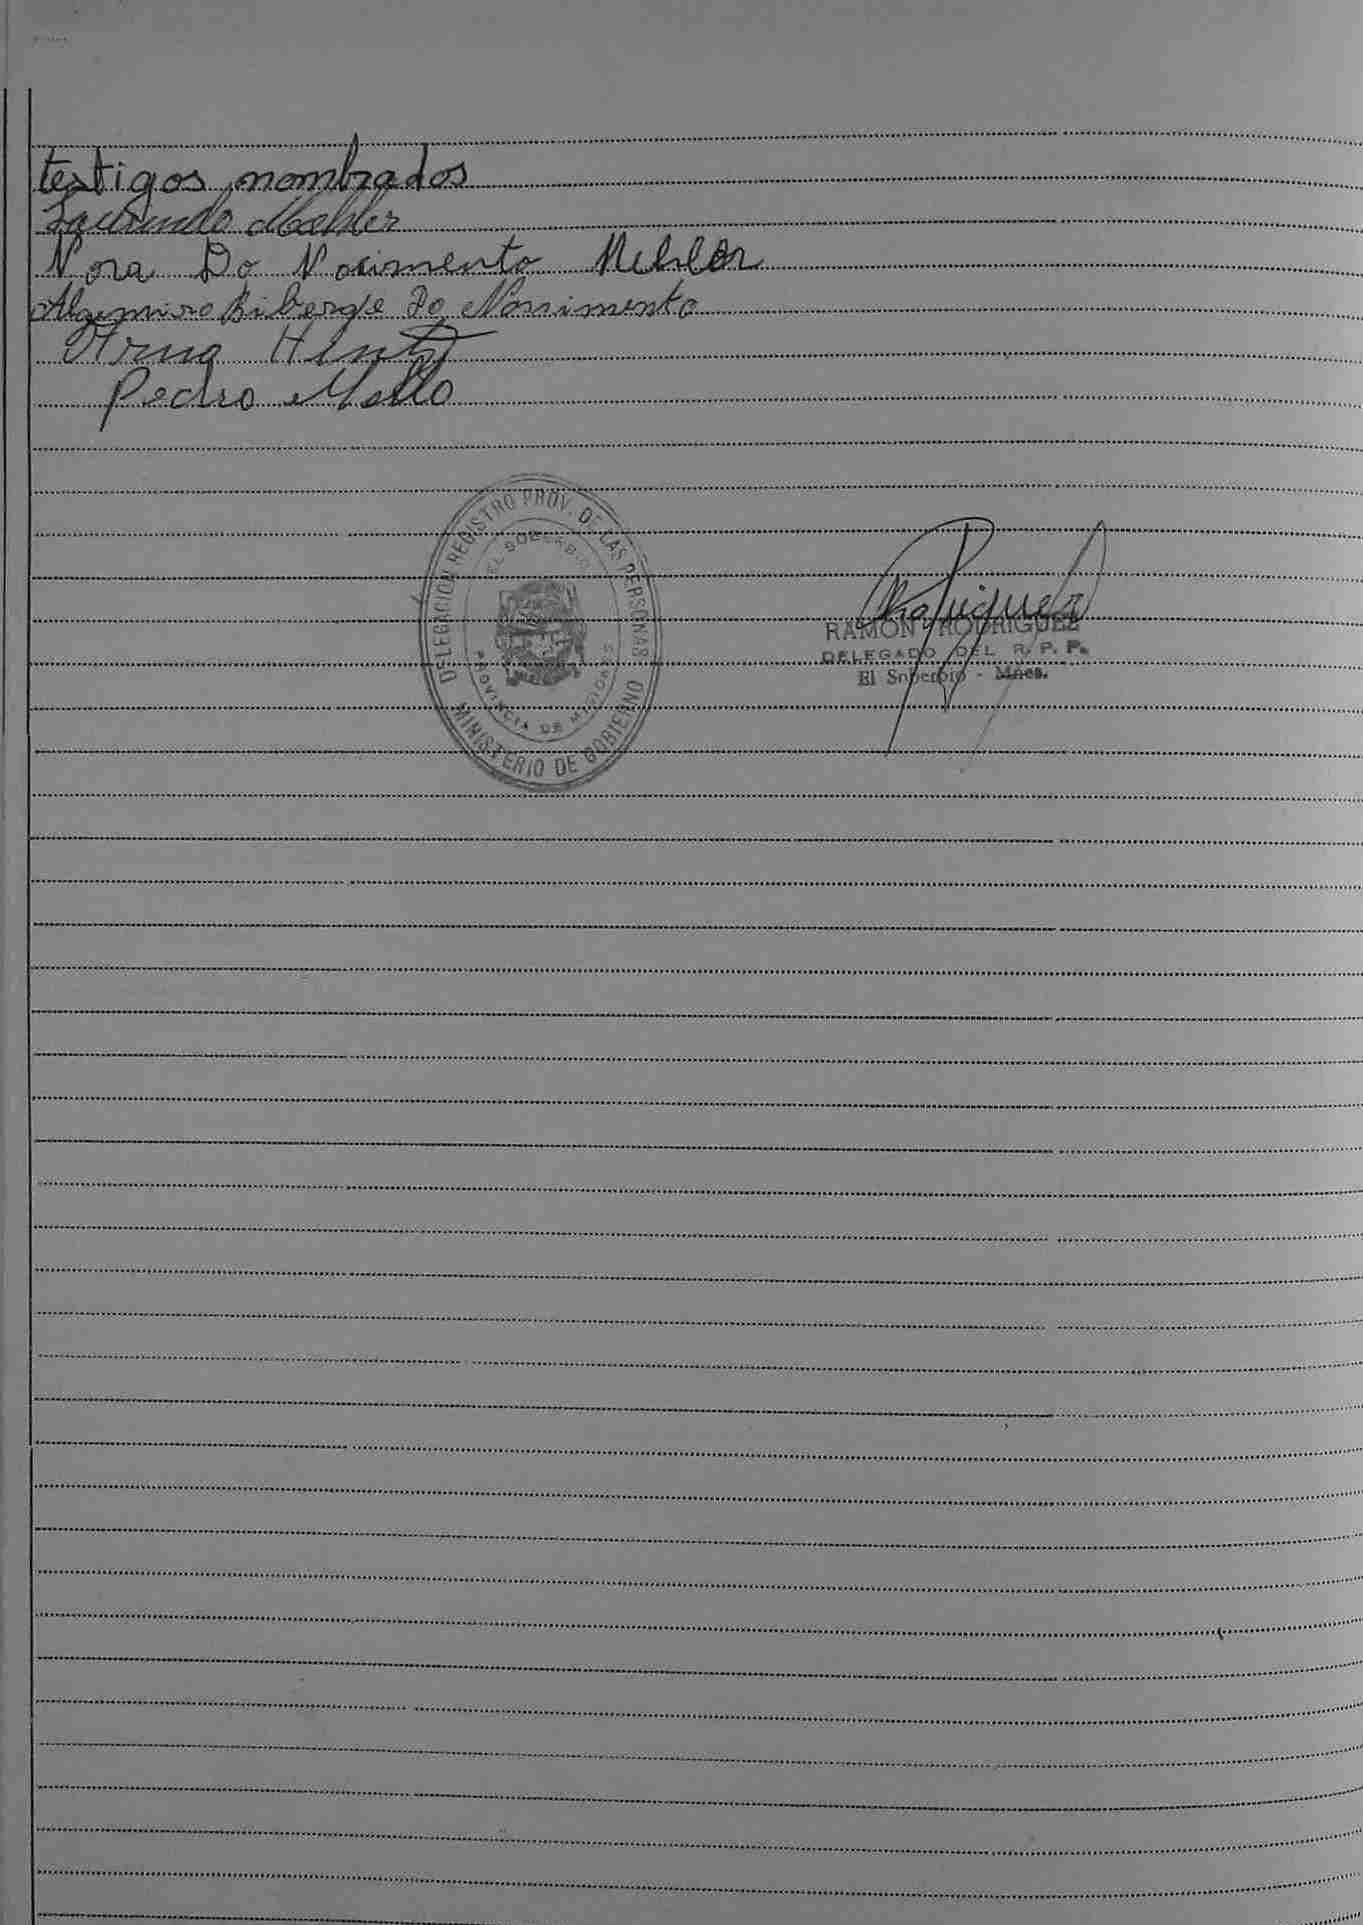 testigos nombrados
Laurindo Mehler
Nora Do Nacimento Mehler
Algemiro Biberge Do Nassimento
Pedro Mello
DELEGACION REGISTRO PROV. DE LAS PERSONAS
EL SOBERBIO
PROVINCIA DE MISIONES
MINISTERIO DE GOBIERNO
RAMON RODRIGUEZ
DELEGADO DEL R. P. P.
El Soberbio - Mnes.